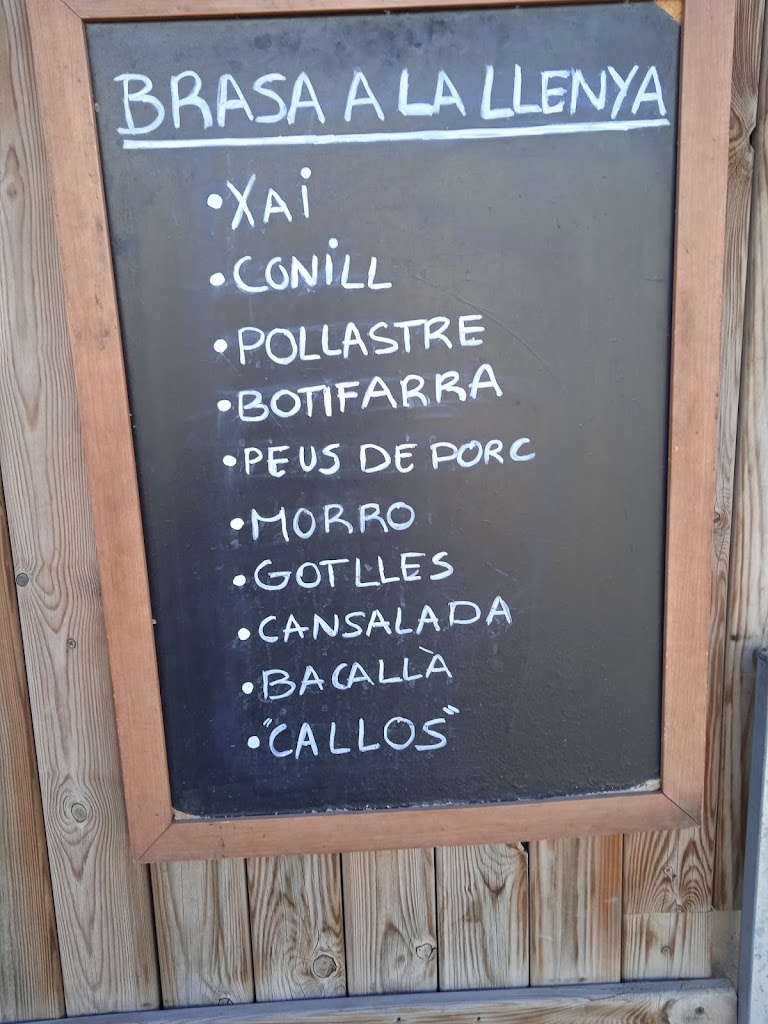 BRASA A LA LLENYA
•XAi
•CONiLL
•POLLASTRE
•BOTIFARRA
•PEUS DE PORC
•MORRO
•GOTLLES
•CANSALADA
•BACALLÀ
•"CALLOS"